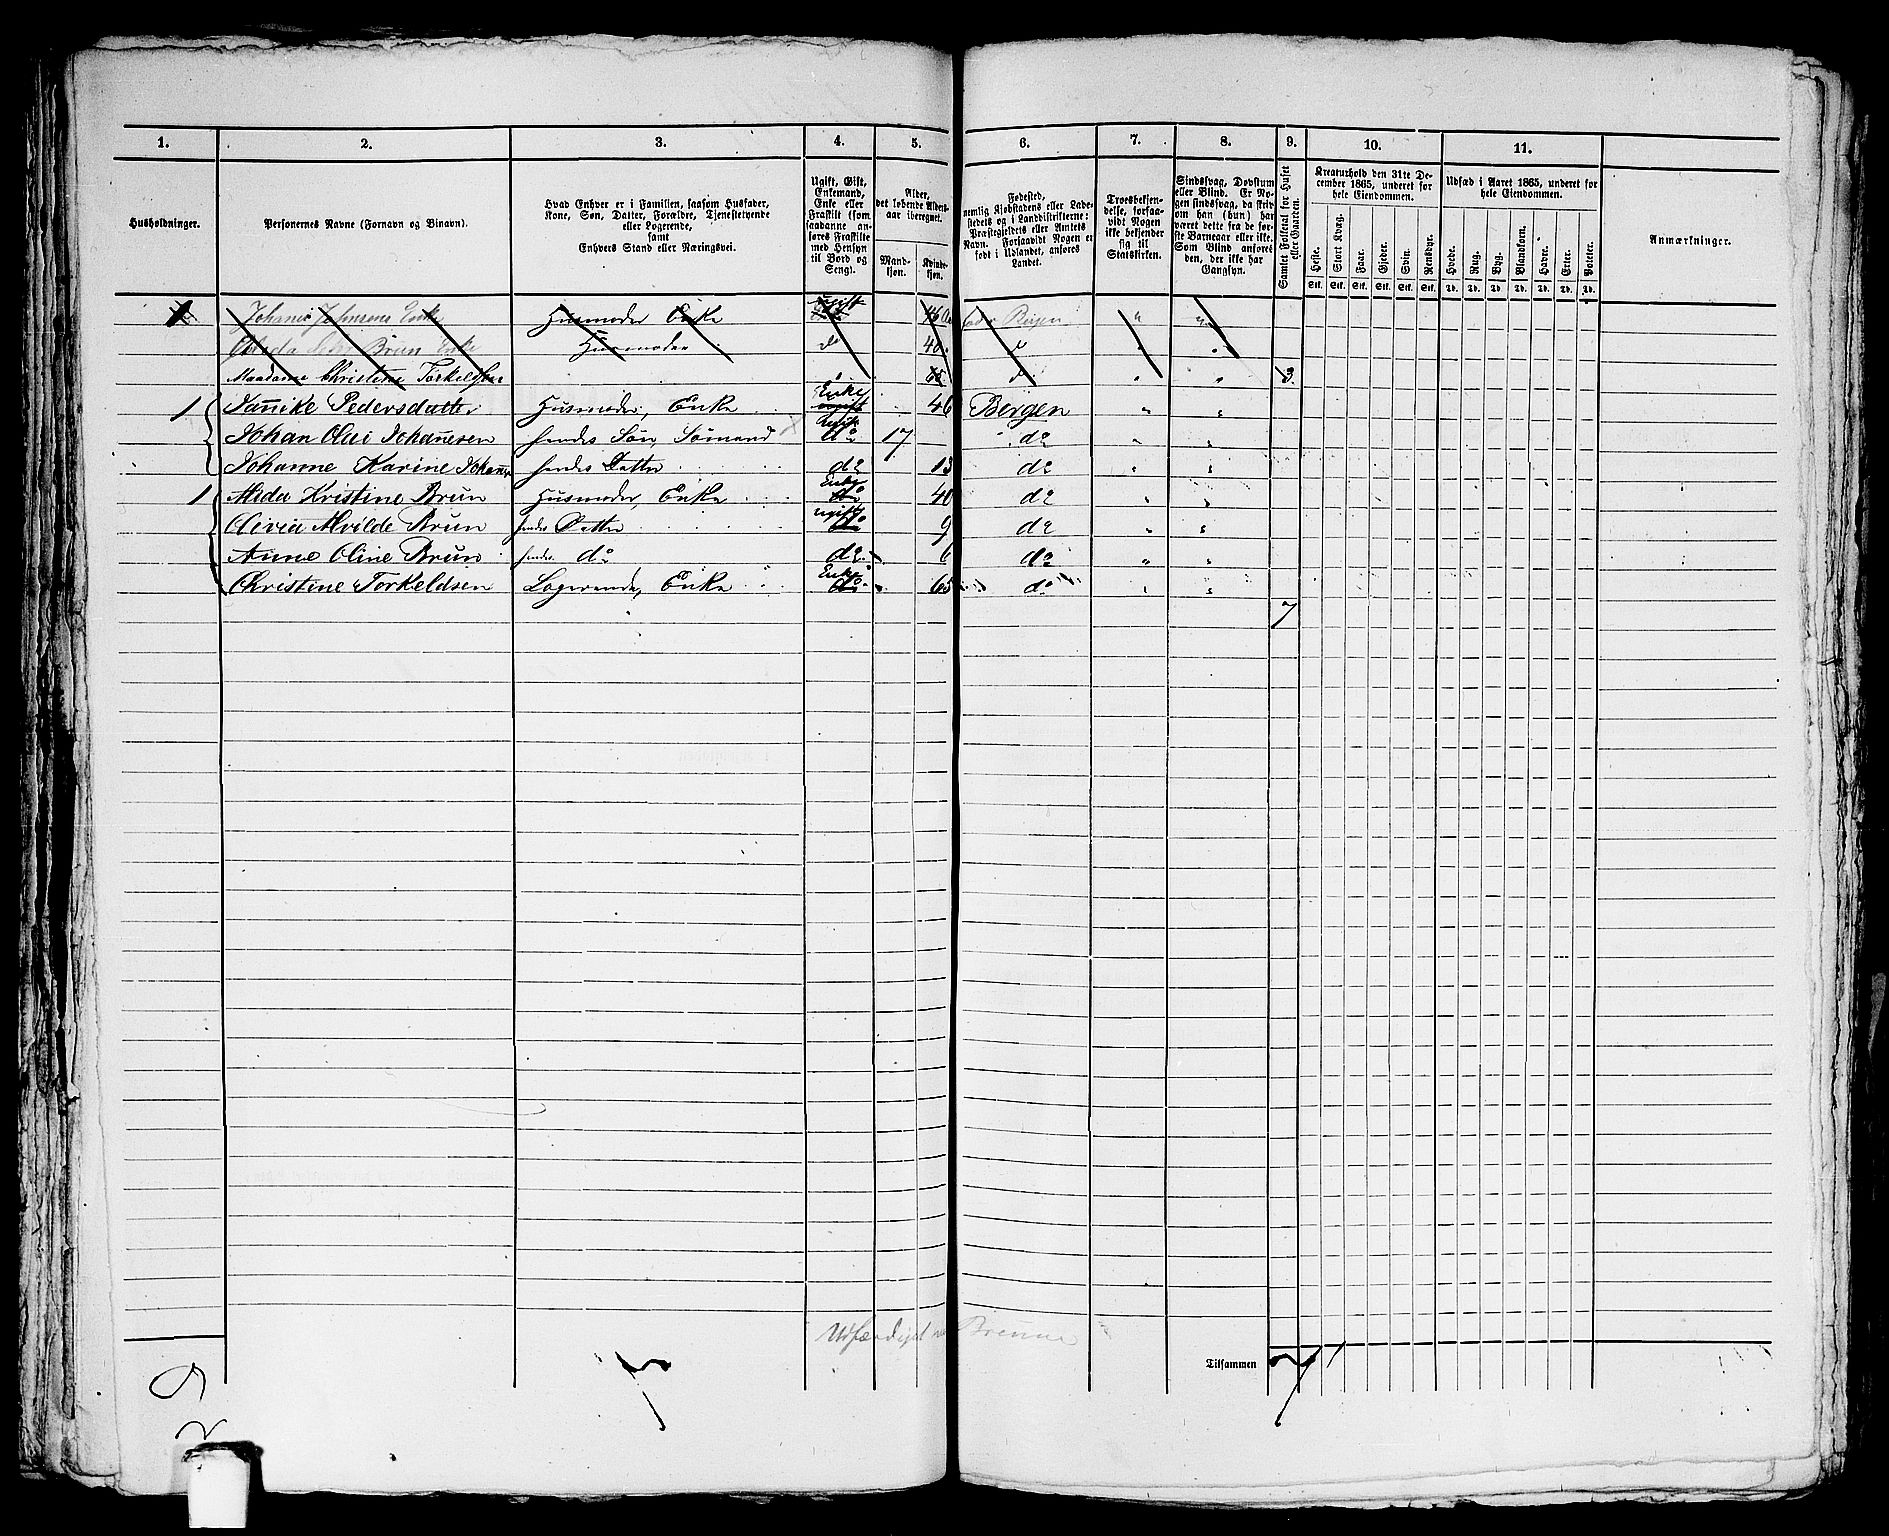 1. 2. 3. 4. 5. 6. 7. 8. 9. 10. 11.
Husholdninger.
Personernes Navne (Fornavn og Binavn).
Hvad Enhver er i Familien, saasom Husfader, Kone, Søn, Datter, Forældre, Tjenestetyende eller Logerende, samt Enhvers Stand eller Næringsvei.
Ugift, Gift, Enkemand, Enke eller Fraskilt (som saadanne anføres Fraskilte med Hensyn til Bord og Seng).
Alder, det løbende Alders-aar iberegnet.
Mand-kjøn. Kvinde-kjøn.
Fødested, nemlig Kjøbstadens eller Ladestedets og i Landdistrikterne: Præstegjeldets eller Amtets Navn. Forsaavidt Nogen er født i Udlandet, anføres Landet.
Troesbekjendelse, forsaavidt Nogen ikke bekjender sig til Statskirken.
Sindssvag, Døvstum eller Blind. Er Nogen sindssvag, da skrives om han (hun) har været dette fra de første Barneaar eller ikke. Som Blind anføres den, der ikke har Gangsyn.
Samlet Folketal for Huset eller Gaarden.
Kreaturhold den 31te December 1865, underet for hele Eiendommen.
Heste. Stort Kvæg. Faar. Gjeder. Svin. Rensdyr.
Stk. Stk. Stk. Stk. Stk. Stk.
Udsæd i Aaret 1865, underet for hele Eiendommen.
Hvede. Rug. Byg. Blandkorn. Havre. Erter. Poteter.
Td. Td. Td. Td. Td. Td. Td.
Anmærkninger.
Johnsens Enke Husmoder Enke ugift 46 Bergen " "
Brun Enke Husmoder do 40 do
Maadame Christine Torkelsen 65 do " " 3
1 Jannike Pedersdatter Husmoder, Enke Enke ugift 46 Bergen " "
Johan Olai Johanesen hendes Søn, Sømand ugift do 17 do " "
Johanne Karine Johans hendes Datter do 13 do " "
1 Alida Kristine Brun Husmoder, Enke Enke do 40 do " "
Olivia Alvilde Brun hendes Datter ugift do 9 do " "
Anne Oline Brun hendes do do 6 do " "
Christine Torkeldsen Logerende, Enke Enke do 65 do " "
7
Udfærdiget
Tilsammen 7
7